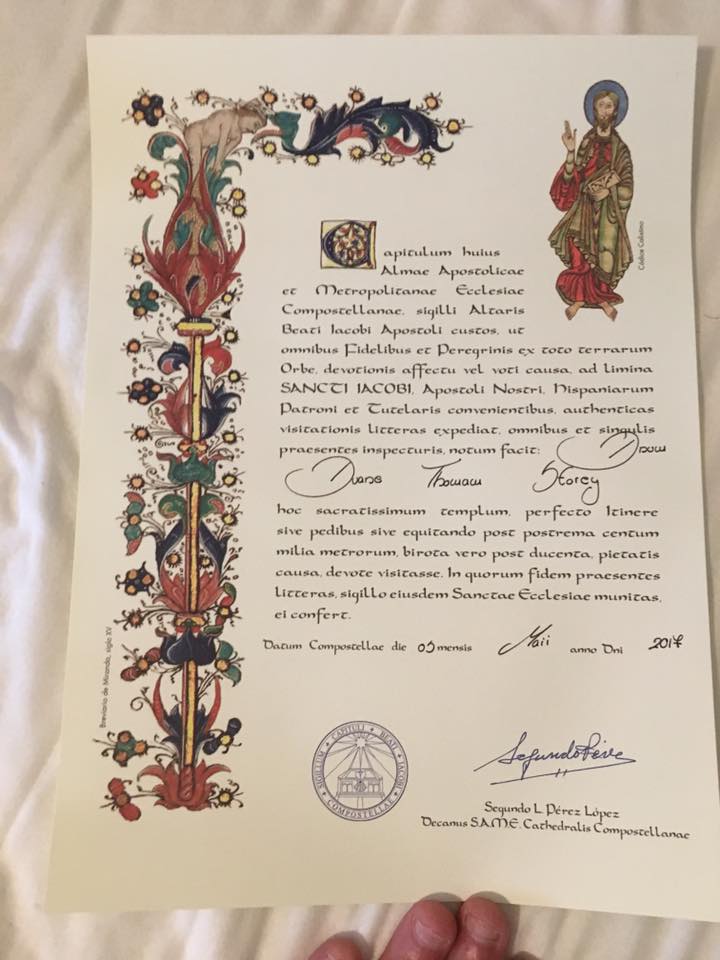 Códice Calixtino
Capitulum huius
Almae Apostolicae
et Metropolitanae Ecclesiae
Compostellanae, sigilli Altaris
Beati Iacobi Apostoli custos, ut
omnibus Fidelibus et Peregrinis ex toto terrarum
Orbe, devotionis affectu vel voti causa, ad limina
SANCTI IACOBI, Apostoli Nostri, Hispaniarum
Patroni et Tutelaris convenientibus, authenticas
visitationis litteras expediat, omnibus et singulis
praesentes inspecturis, notum facit:
Storey
hoc sacratissimum templum, perfecto Itinere
sive pedibus sive equitando post postrema centum
milia metrorum, birota vero post ducenta, pietatis
causa, devote visitasse. In quorum fidem praesentes
litteras, sigillo eiusdem Sanctae Ecclesiae munitas,
ei confert.
Datum Compostellae die mensis Maii anno Dni 2017
Breviario de Miranda, siglo XV
SIGILLUM CAPITULI BEATI IACOBI COMPOSTELLAE
Segundo L. Pérez López
Decanus S.A.M.E. Cathedralis Compostellanae